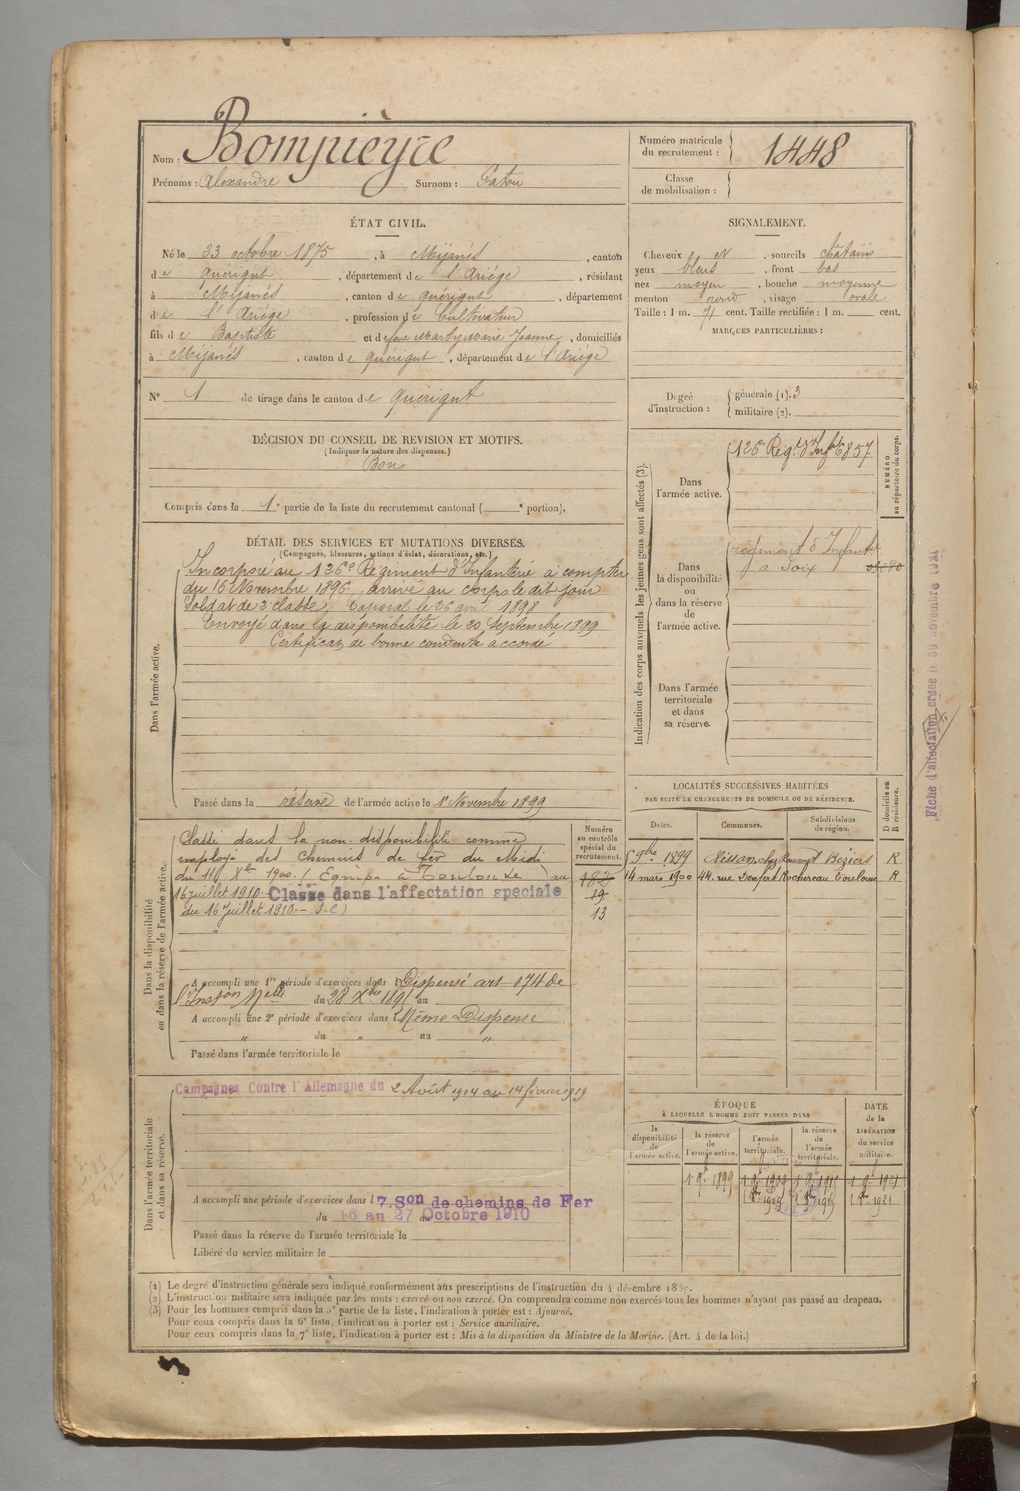 Nom : Bompièyre
Prénoms : Alexandre Surnom : Gatou
Numéro matricule
du recrutement : 1448
Classe
de mobilisation :
ÉTAT CIVIL.
Né le 23 octobre 1875, à Mijanés, canton
de Quérigut, département de l'Ariége, résidant
à Mijanés, canton de Quérigut, département
de l'Ariége, profession de Cultivateur
fils de Baptiste et de feue Marty Marie Jeanne, domiciliés
à Mijanés, canton de Quérigut, département de l'Ariége
N° 1 de tirage dans le canton de Quérigut
SIGNALEMENT.
Cheveux N, sourcils châtains
yeux bleus, front bas
nez moyen, bouche moyenne
menton rond, visage ovale
Taille : 1 m. 71 cent. Taille rectifiée : 1 m. cent.
MARQUES PARTICULIÈRES :
Degré
d'instruction :
générale (1). 3
militaire (2).
DÉCISION DU CONSEIL DE REVISION ET MOTIFS.
(Indiquer la nature des dispenses.)
Bon
Compris dans la 1e partie de la liste du recrutement cantonal ( e portion).
DÉTAIL DES SERVICES ET MUTATIONS DIVERSES.
(Campagnes, blessures, actions d'éclat, décorations, etc.)
Dans l'armée active.
Incorporé au 126e Régiment d'Infanterie à compter
du 16 Novembre 1896, arrivé au corps le dit jour
Soldat de 2e classe, Caporal le 26 avril 1898
Envoyé dans la disponibilité le 20 Septembre 1899
Certificat de bonne conduite accordé
Passé dans la réserve de l'armée active le 1er Novembre 1899
Indication des corps auxquels les jeunes gens sont affectés (3).
Dans
l'armée active.
126e Régt d'Infie 6857
NUMÉRO
au répertoire du corps.
Dans
la disponibilité
ou
dans la réserve
de
l'armée active.
régiment d'Infanterie
à Foix
Dans l'armée
territoriale
et dans
sa réserve.
Fiche d'affectation créée le 30 novembre
LOCALITÉS SUCCESSIVES HABITÉES
PAR SUITE DE CHANGEMENTS DE DOMICILE OU DE RÉSIDENCE.
Dates. Communes. Subdivisions
de région.
D domicile ou
R résidence.
9bre 1899 Nissan, chez Béziers R.
14 mars 1900 44. rue Denfert Rochereau Toulouse R.
Dans la disponibilité
ou dans la réserve de l'armée active.
Numéro
au contrôle
spécial du
recrutement.
Classé dans la non-disponibilité comme
employé des Chemins de fer du Midi
du 11 Xbre 1900. (Equipe à Toulouse) au
16 juillet 1910. Classé dans l'affectation spéciale
du 16 Juillet 1910
19
13
A accompli une 1re période d'exercices dans l Dispensé art 174 de
l'Inston Melle du 28 Xbre 1895 au
A accompli une 2e période d'exercices dans l Même Dispense
du " au "
Passé dans l'armée territoriale le
Dans l'armée territoriale
et dans sa réserve.
Campagnes Contre l'Allemagne du 2 Août 1914 au 14 février 1919
A accompli une période d'exercices dans l 7. Son de chemins de Fer
du 18 au 27 Octobre 1910
Passé dans la réserve de l'armée territoriale le
Libéré du service militaire le
ÉPOQUE
À LAQUELLE L'HOMME DOIT PASSER DANS
la
disponibilité
de
l'armée active.
la réserve
de
l'armée active.
l'armée
territoriale.
la réserve
de
l'armée
territoriale.
DATE
de la
LIBÉRATION
du service
militaire.
1 9bre 1899
(1) Le degré d'instruction générale sera indiqué conformément aux prescriptions de l'instruction du 4 décembre 1889.
(2) L'instruction militaire sera indiquée par les mots : exercé ou non exercé. On comprendra comme non exercés tous les hommes n'ayant pas passé au drapeau.
(3) Pour les hommes compris dans la 5e partie de la liste, l'indication à porter est : Ajourné.
Pour ceux compris dans la 6e liste, l'indication à porter est : Service auxiliaire.
Pour ceux compris dans la 7e liste, l'indication à porter est : Mis à la disposition du Ministre de la Marine. (Art. 4 de la loi.)